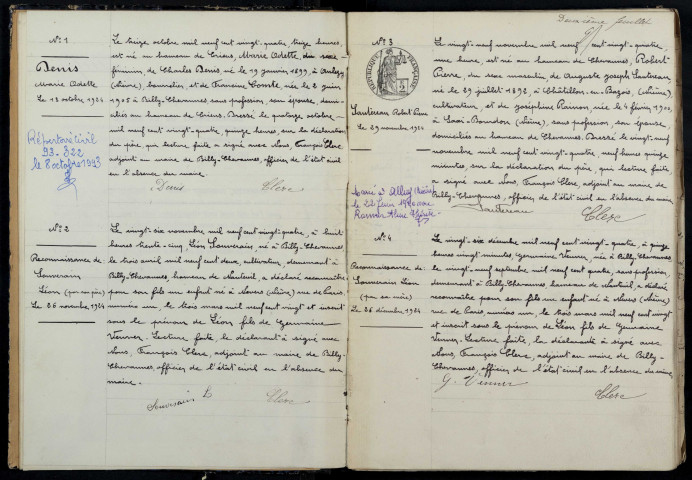 N° 1
Denis
Marie Odette
Le 13 octobre 1924
Répertoire civil
93-322
le 8 octobre 1993
Le treize octobre mil neuf cent vingt-quatre, treize heures,
est né au hameau de Marie Odette, du sexe
féminin de Charles Denis, né le 19 janvier 1899, à
(Nièvre), et de Francine né le 2 juin
1905 à Billy-Chevannes sans profession, son épouse, domici-
liés au hameau de Dressé le quatorze octobre
mil neuf cent vingt-quatre, quinze heures, sur la déclaration
du père, qui, lecture faite a signé avec Nous, François Clerc,
adjoint au maire de Billy-Chevannes, officier de l'état civil en
en l'absence du maire.
Denis Clerc
N° 2
Reconnaissance de
Souverain
Léon (par son père)
Le 26 novembre 1924
Le vingt-six novembre mil neuf cent vingt-quatre, à huit
heures trente-cinq, Léon Souverain, né à Billy-Chevannes,
le trois avril mil neuf cent deux, cultivateur, demeurant à
Billy-Chevannes, hameau de Nanteuil, a déclaré reconnaître
pour son fils un enfant né à Nevers (Nièvre) rue de Paris,
numéro un, le trois mars mil neuf cent vingt et inscrit
sous le prénom de Léon fils de Germaine
Venner. Lecture faite, le déclarant a signé avec
Nous, François Clerc, adjoint au maire de Billy-
Chevannes, officier de l'état civil en l'absence du
maire.
Souverain L Clerc
Deuxième feuillet
N° 3
RÉPUBLIQUE FRANÇAISE
Sautereau Robert Pierre
Le 29 novembre 1924
Marié à (Nièvre)
le 22 Juin
Le vingt-neuf novembre mil neuf cent vingt-quatre,
une heure, est né au hameau de Chevannes, Robert
Pierre, du sexe masculin de Auguste Joseph Sautereau,
né le 29 juillet 1892, à Châtillon-en-Bazois, (Nièvre)
cultivateur, et de Joséphine né le 4 février
à (Nièvre), sans profession, son épouse,
domiciliés au hameau de Chevannes. Dressé le vingt-neuf
novembre mil neuf cent vingt-quatre, neuf heures quinze
minutes, sur la déclaration du père, qui lecture faite
a signé avec Nous, François Clerc, adjoint au maire de
Billy-Chevannes, officier de l'état civil en l'absence du maire
Sautereau Clerc
N° 4
Reconnaissance de
Souverain Léon
(par sa mère)
Le 26 décembre 1924
Le vingt-six décembre mil neuf cent vingt-quatre, à quinze
heures vingt minutes, Germaine Venner, née à Billy-Chevannes
le vingt-neuf septembre mil neuf cent quatre, sans profession,
demeurant à Billy-Chevannes, hameau de Nanteuil, a déclaré
reconnaître pour son fils un enfant né à Nevers (Nièvre)
rue de Paris, numéro un, le trois mars mil neuf cent vingt
et inscrit sous le prénom de Léon fils de Germaine
Venner. Lecture faite, la déclarante a signé avec
Nous, François Clerc, adjoint au maire de Billy-
Chevannes, officier de l'état civil en l'absence du maire
G. Venner
Clerc